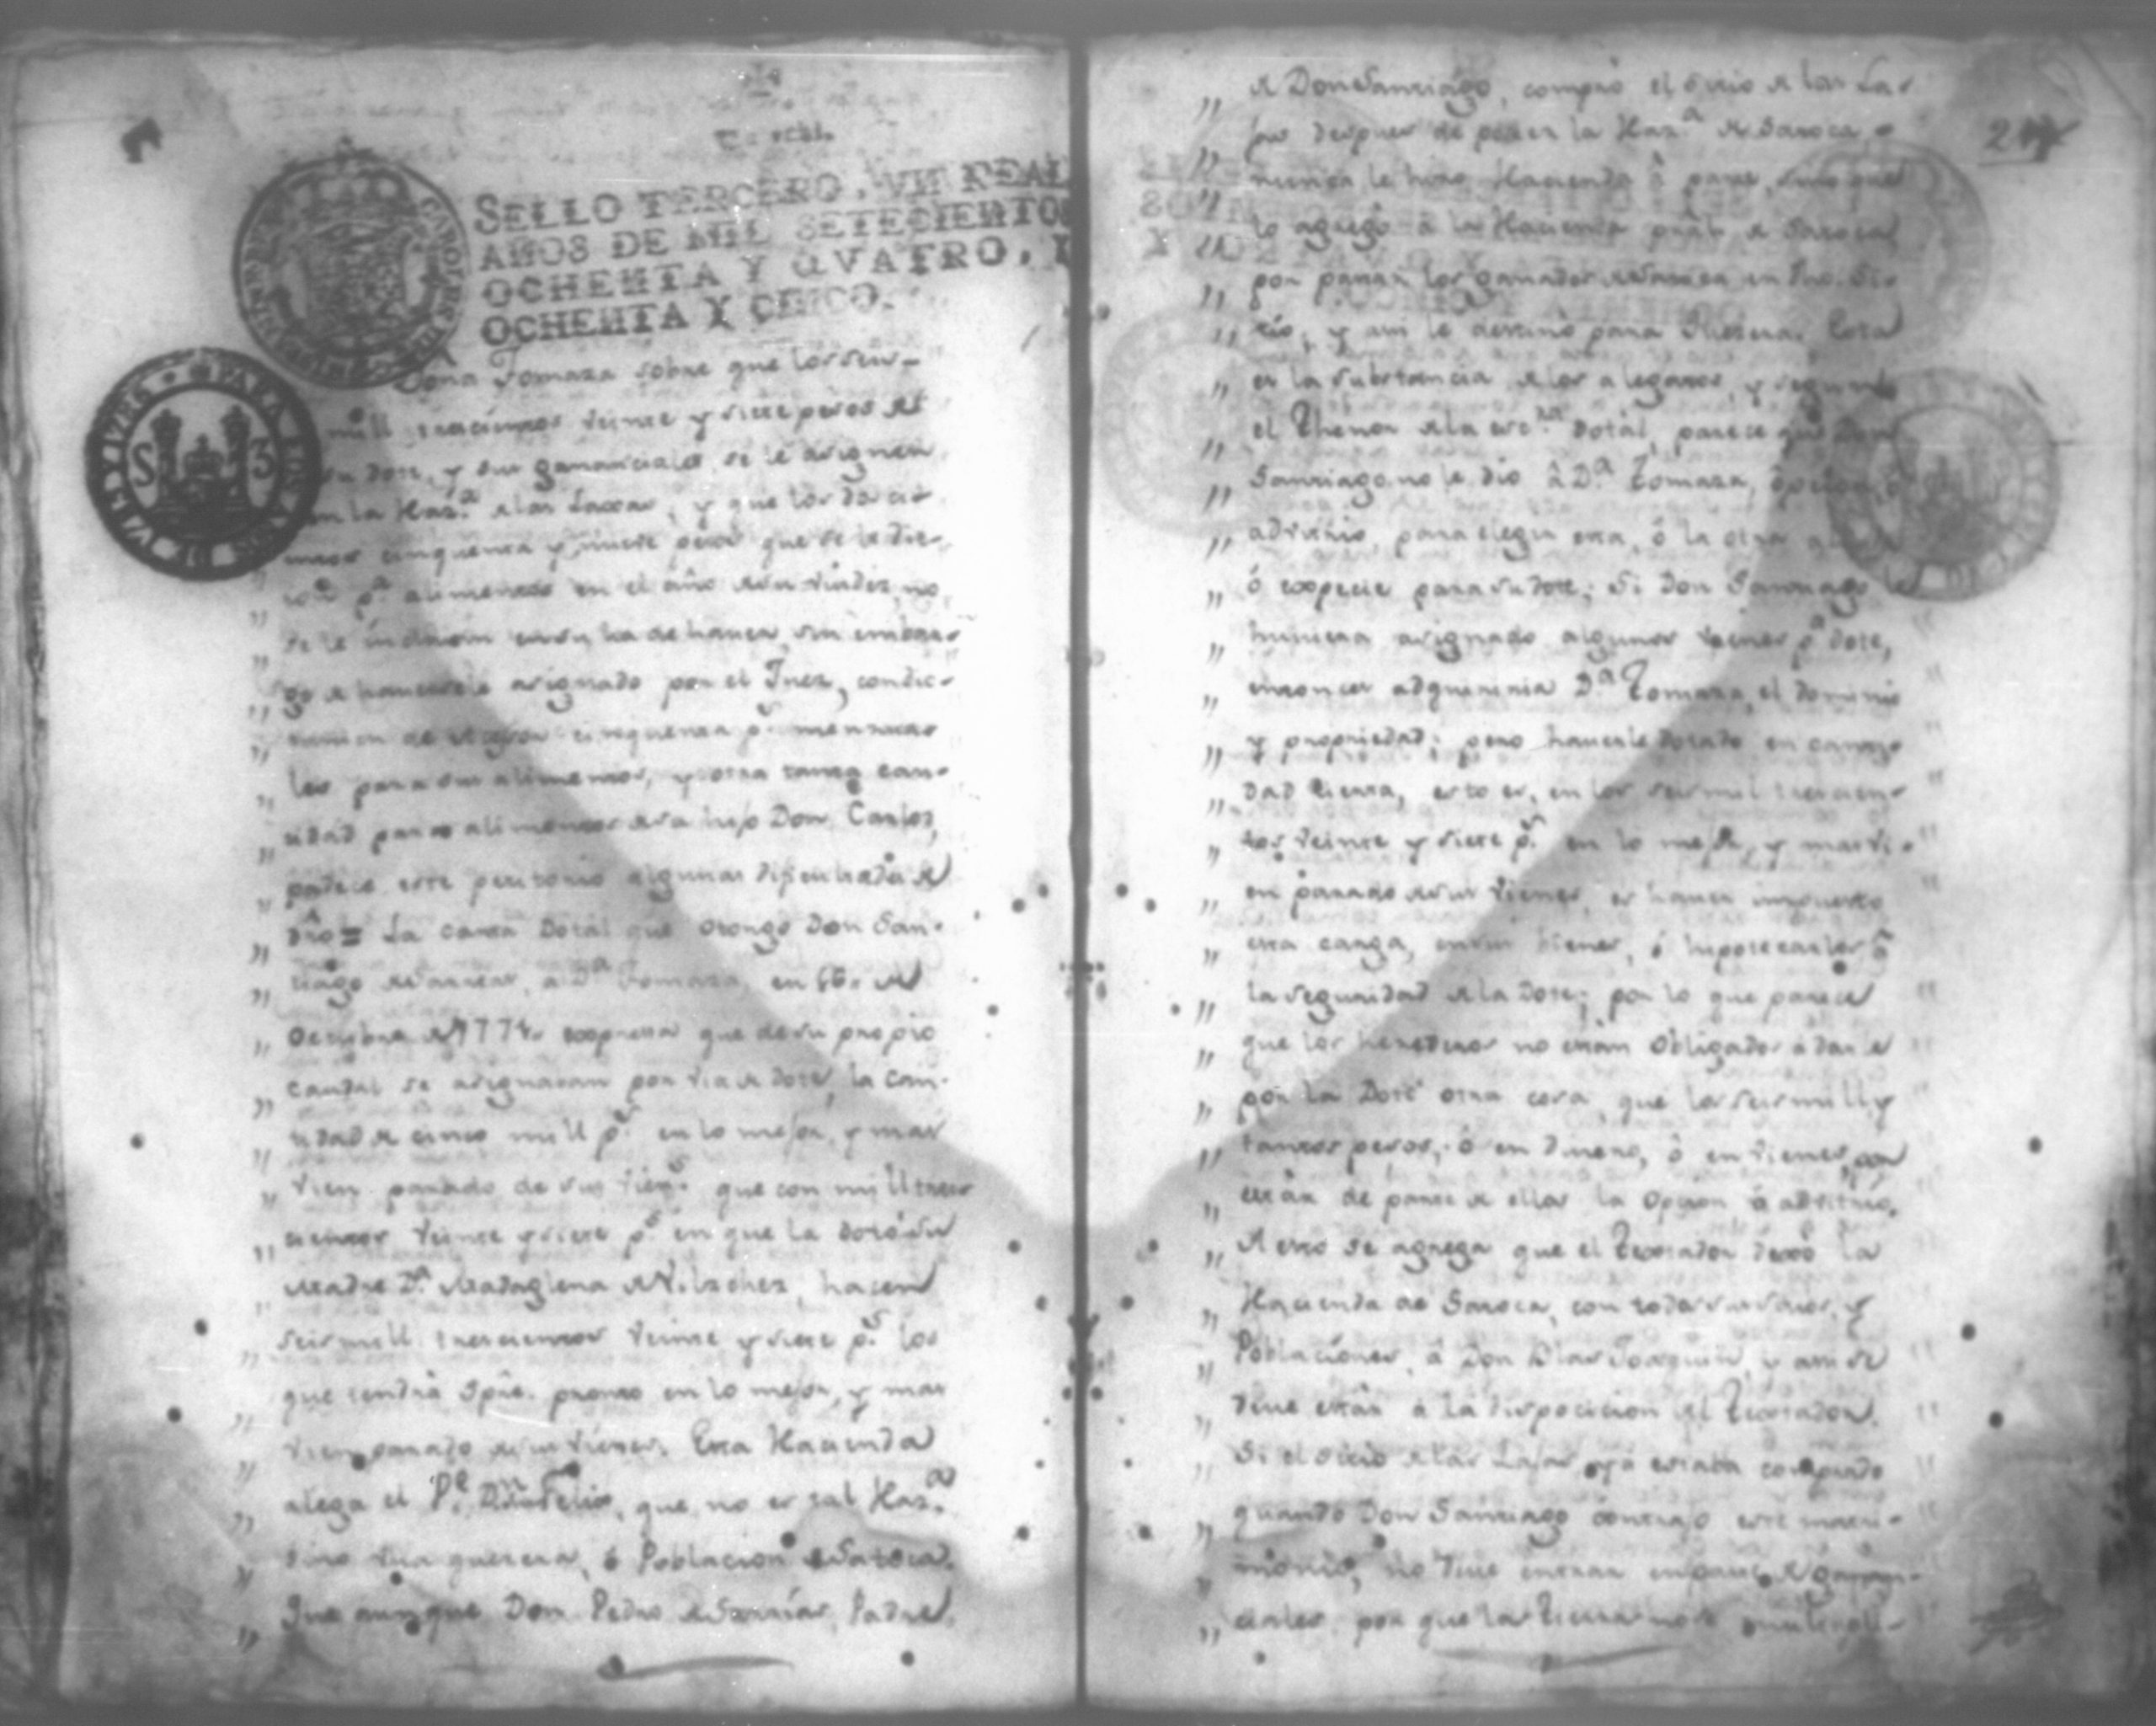 SELLO TERCERO, VN REAL
AÑOS DE MIL SETECIENTOS
OCHENTA Y QVATRO, Y
OCHENTA Y CINCO.
CAROLUS III
PARA LOS AÑOS DE
S 3
Dona Tomasa sobre que los seis
mill trecientos veinte y siete pesos de
su dote, y sus gananciales se le asignen
en la Haz.da de las Laxas, y que los docien
tos cinquenta y nueve pesos que se le die-
ron p.a alimentos en el año de su viudez, no
se le incluien en su ha de haver, sin embar-
go de haversele asignado por el Juez,
cinquenta p.s mensua
les para sus alimentos, y otra tanta can-
tidad para alimentos de su hijo Don Carlos,
padece este peritorio algunas dificultades de
dro = La carta Dotal que otorgó Don San-
tiago de Sarrias, a D.a Tomasa en 16 de
Octubre de 1774 expresa que de su propio
caudal se asignaron por via de dote, la can-
tidad de cinco mill p.s en lo mejor, y mas
vien parado de sus vien.s que con mill tres
cientos veinte y siete p.s en que la dotó su
Madre D.a Madaglena de Vilschez, hacen
seis mill trescientos veinte y siete p.s los
que tendrá Spre. pronto en lo mejor, y mas
vien parado de sus vienes. Esta Hacienda
alega el P.e D.n Felis, que no es tal Haz.da
sino una quesera, ó Poblacion de Saroca.
Que aunque Don Pedro de Sarrias, Padre
de Don Santiago, compró el sitio de las La-
jas despues de poseer la Haz.a de Saroca,
nunca le hizo Hacienda á parte, sino que
lo agregó á la Hacienda pral. de Saroca
por pasar los ganados de Saroca en dho. Si-
tio, y asi le destinó para Quesera. Esta
es la substancia de los alegatos, y segun
el thenor de la esc.ra Dotal, parece que Don
Santiago no le dio á D.a Tomasa, opcion, ó
advitrio, para elegir esta, ó la otra
ó especie para su dote; Si Don Santiago
huviera asignado algunos vienes p.a dote,
entonces adquiriria D.a Tomasa, el dominio
y propriedad; pero haverle dotado en canti
dad cierta, esto es, en los seis mil trescien-
tos veinte y siete p.s en lo mejor, y mas vi-
en parado de sus vienes, es haver impuesto
esta carga, en sus bienes, ó hipotecarlos á
la seguridad de la Dote; por lo que parece
que los herederos no están obligados á darle
por la Dote otra cosa, que los seis mill y
tantos pesos, ó en dinero, ó en vienes, por
estár de parte de ellos la Opcion ó advitrio.
A esto se agrega que el Testador dexó la
Hacienda de Saroca, con todos sus sitios, y
Poblaciones, á Don Blas Joaquin, y asi se
deve estár á la disposicion del Testador.
Si el sitio de las Lajas ya estaba comprado
quando Don Santiago contrajo este matri-
monio, no deve entrar en parte de ganan-
ciales, por que las tierras no se multipli-